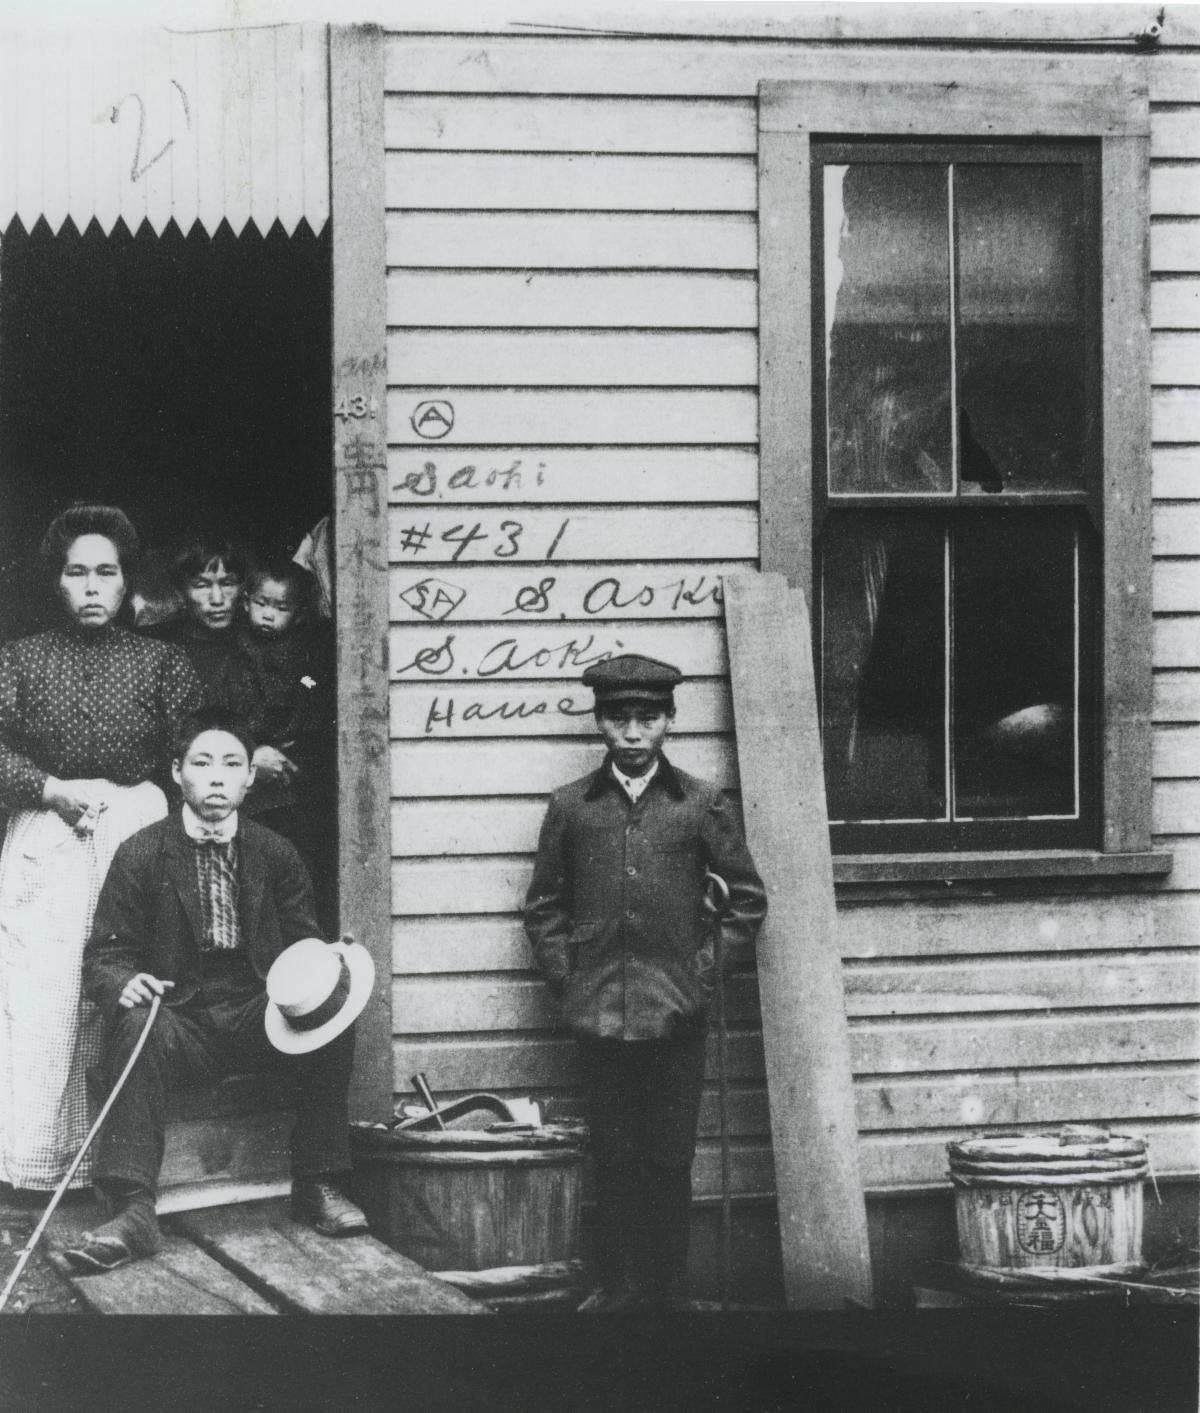 21
Aoki
431
青木
Ⓐ
S. Aoki
#431
SA S. Aoki
S. Aoki
Hause
大金福